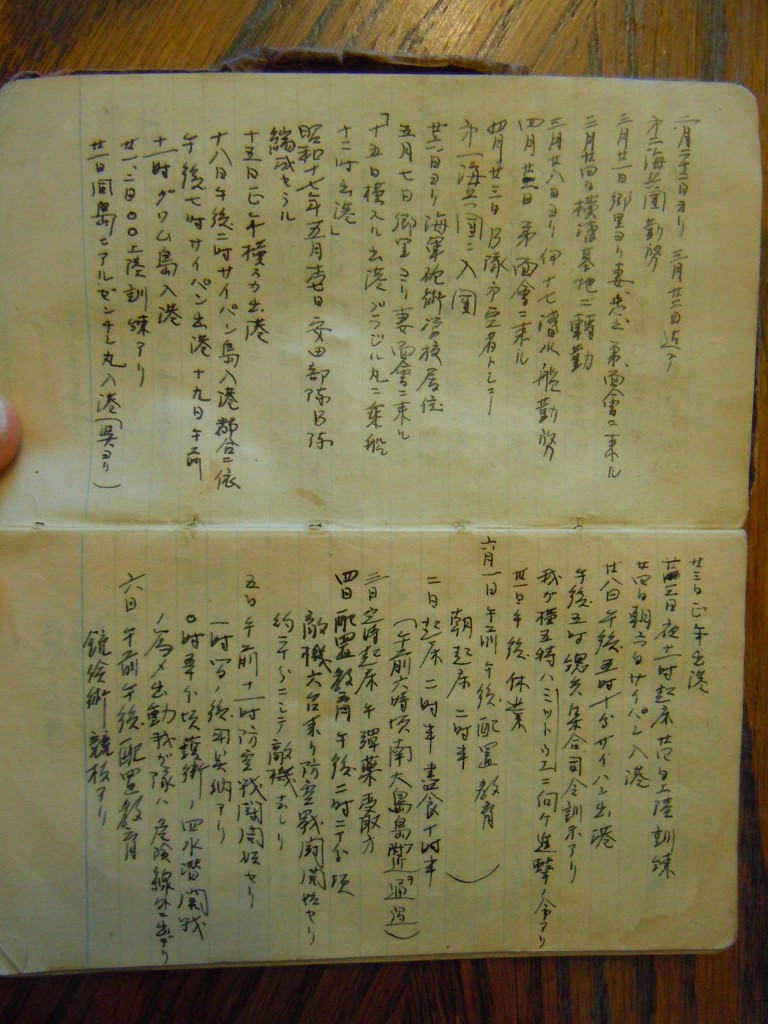 二月二十二日ヨリ 三月廿二日迄
第二海兵團勤務
三月廿一日郷里ヨリ妻 弟面會ニ来ル
三月廿四日横濱基地ニ轉勤
三月廿八日ヨリ伊十七潜水艦勤務
四月 日 弟面會ニ来ル
四月廿三日B隊 トシテ
第一海兵團ニ入團
廿六日ヨリ海軍砲術学校居住
五月七日郷里ヨリ妻面會ニ来ル
「十五日横 出港ブラジル丸ニ乗船
十二時出港」
昭和十七年五月壱日安田部隊B隊
編成セラル
十五日正午横 出港
十八日午後二时サイパン島入港都合ニ依
午後七时サイパン出港 十九日午前
十一时グワム島入港
廿一、二日 上陸訓練アリ
廿一日同島ニアルゼンチン丸入港(呉ヨリ)
廿三日正午出港
廿三日夜十一时起床 廿四日上陸訓練
廿四日朝六 サイパン入港
廿八日午後五时十分サイパン出港
午後五时 集合司令訓示アリ
我が横五特ハミッドウエーニ向ケ進撃ノ令アリ
廿一日午後休業
六月一日午前午後配置教育
朝起床 二时半
二日起床二时半晝食十时半
(午前六时頃南大鳥島附近ヲ通過)
三日定時起床 午 彈薬受取方
四日配置教育午後二时二十分頃
敵機六台来リ防空戰闘開始セリ
約二十分ニシテ敵機 リ
五日午前十一时防空戰闘開始セリ
一时 後 納アリ
〇时 分頃護衛ノ 水潜 戰
ノ為メ出動我が隊ハ危険線外ニ出デリ
六日午前午後配置教育
銃 術競技アリ